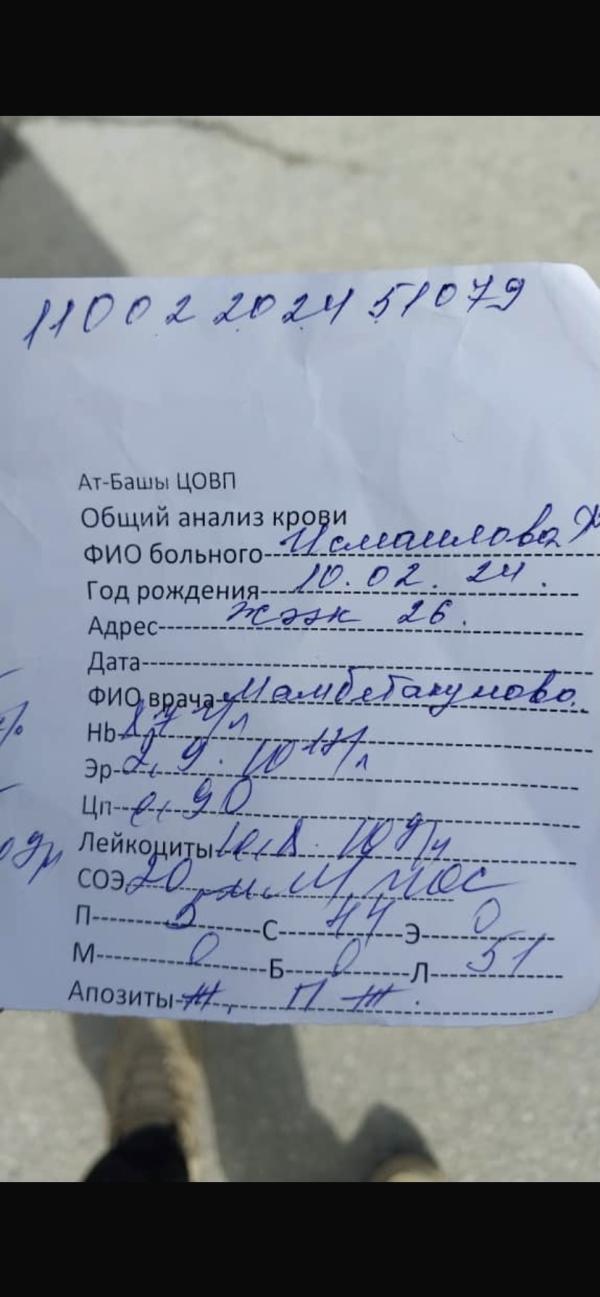 11002202451079
Ат-Башы ЦОВП
Общий анализ крови
ФИО больного Исмаилова
Год рождения 10.02.24.
Адрес 26.
Дата
ФИО врача Мамбетакунова.
Hb 87 г/л
Эр 2,9.10 12/л
Цп 0,90
Лейкоциты 10,8. 10 9/л
СОЭ 20 мм/час
П 5 С 44 Э 0
М 0 Б 0 Л 51
Апозиты